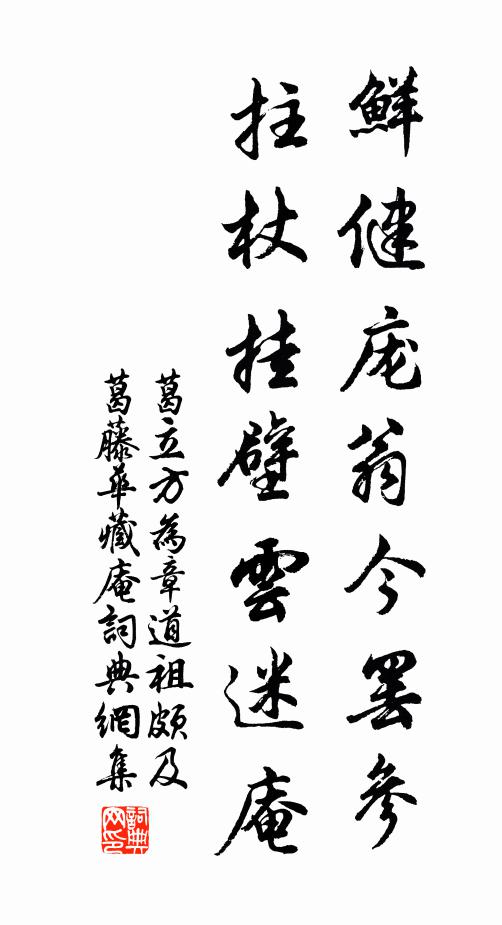 鮮健庞翁今罢參
拄杖挂壁雲迷庵
葛立方為章道祖頗及
葛藤華藏庵詞典網集
詞典網印